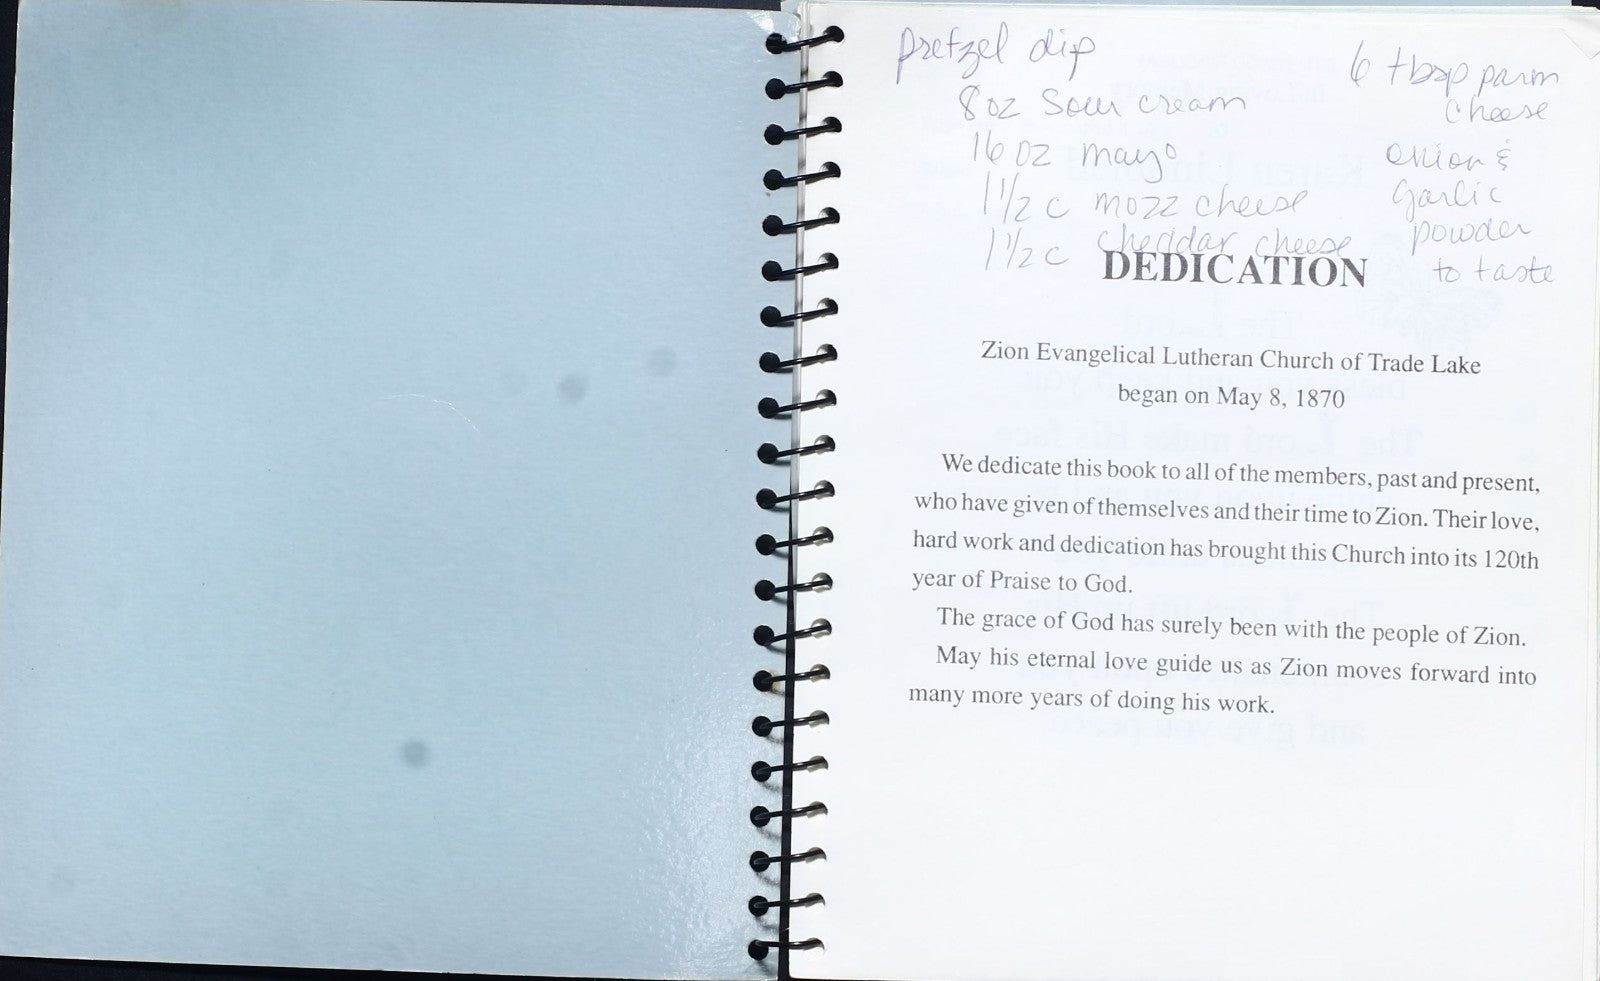 pretzel dip
8 oz sour cream
16 oz mayo
1 1/2 c mozz cheese
1 1/2 c cheddar cheese
6 tbsp parm
cheese
onion &
garlic
powder
to taste
DEDICATION
Zion Evangelical Lutheran Church of Trade Lake
began on May 8, 1870
We dedicate this book to all of the members, past and present,
who have given of themselves and their time to Zion. Their love,
hard work and dedication has brought this Church into its 120th
year of Praise to God.
The grace of God has surely been with the people of Zion.
May his eternal love guide us as Zion moves forward into
many more years of doing his work.